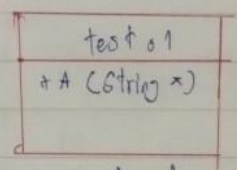 test 01
+ A (String *)